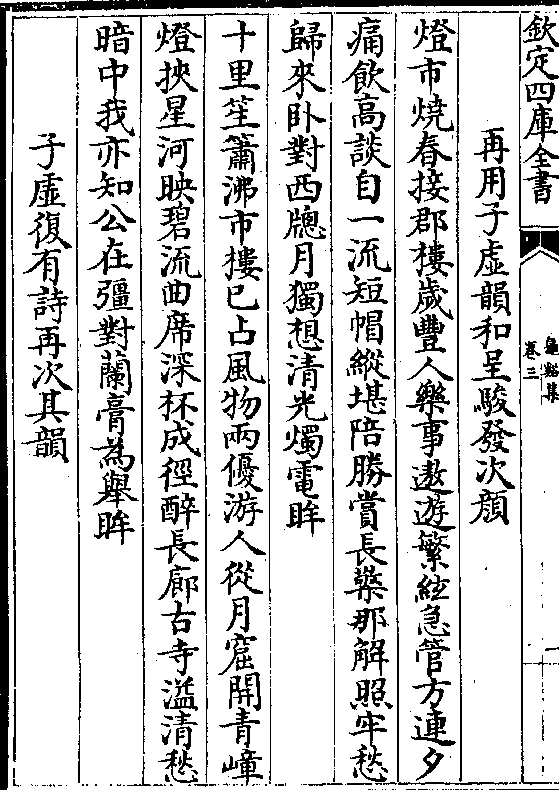 欽定四庫全書
龜谿集
卷三
再用子虛韻和呈駿發次顏
燈市燒春接郡樓歲豐人樂事遨遊繁絃急管方連夕
痛飲高談自一流短帽縱堪陪勝賞長檠那解照牢愁
歸來卧對西牕月獨想清光燭電眸
十里笙簫沸市樓已占風物兩優游人從月窟開青嶂
燈挾星河映碧流曲席深杯成徑醉長廊古寺溢清愁
暗中我亦知公在彊對蘭膏為舉眸
子虛復有詩再次其韻